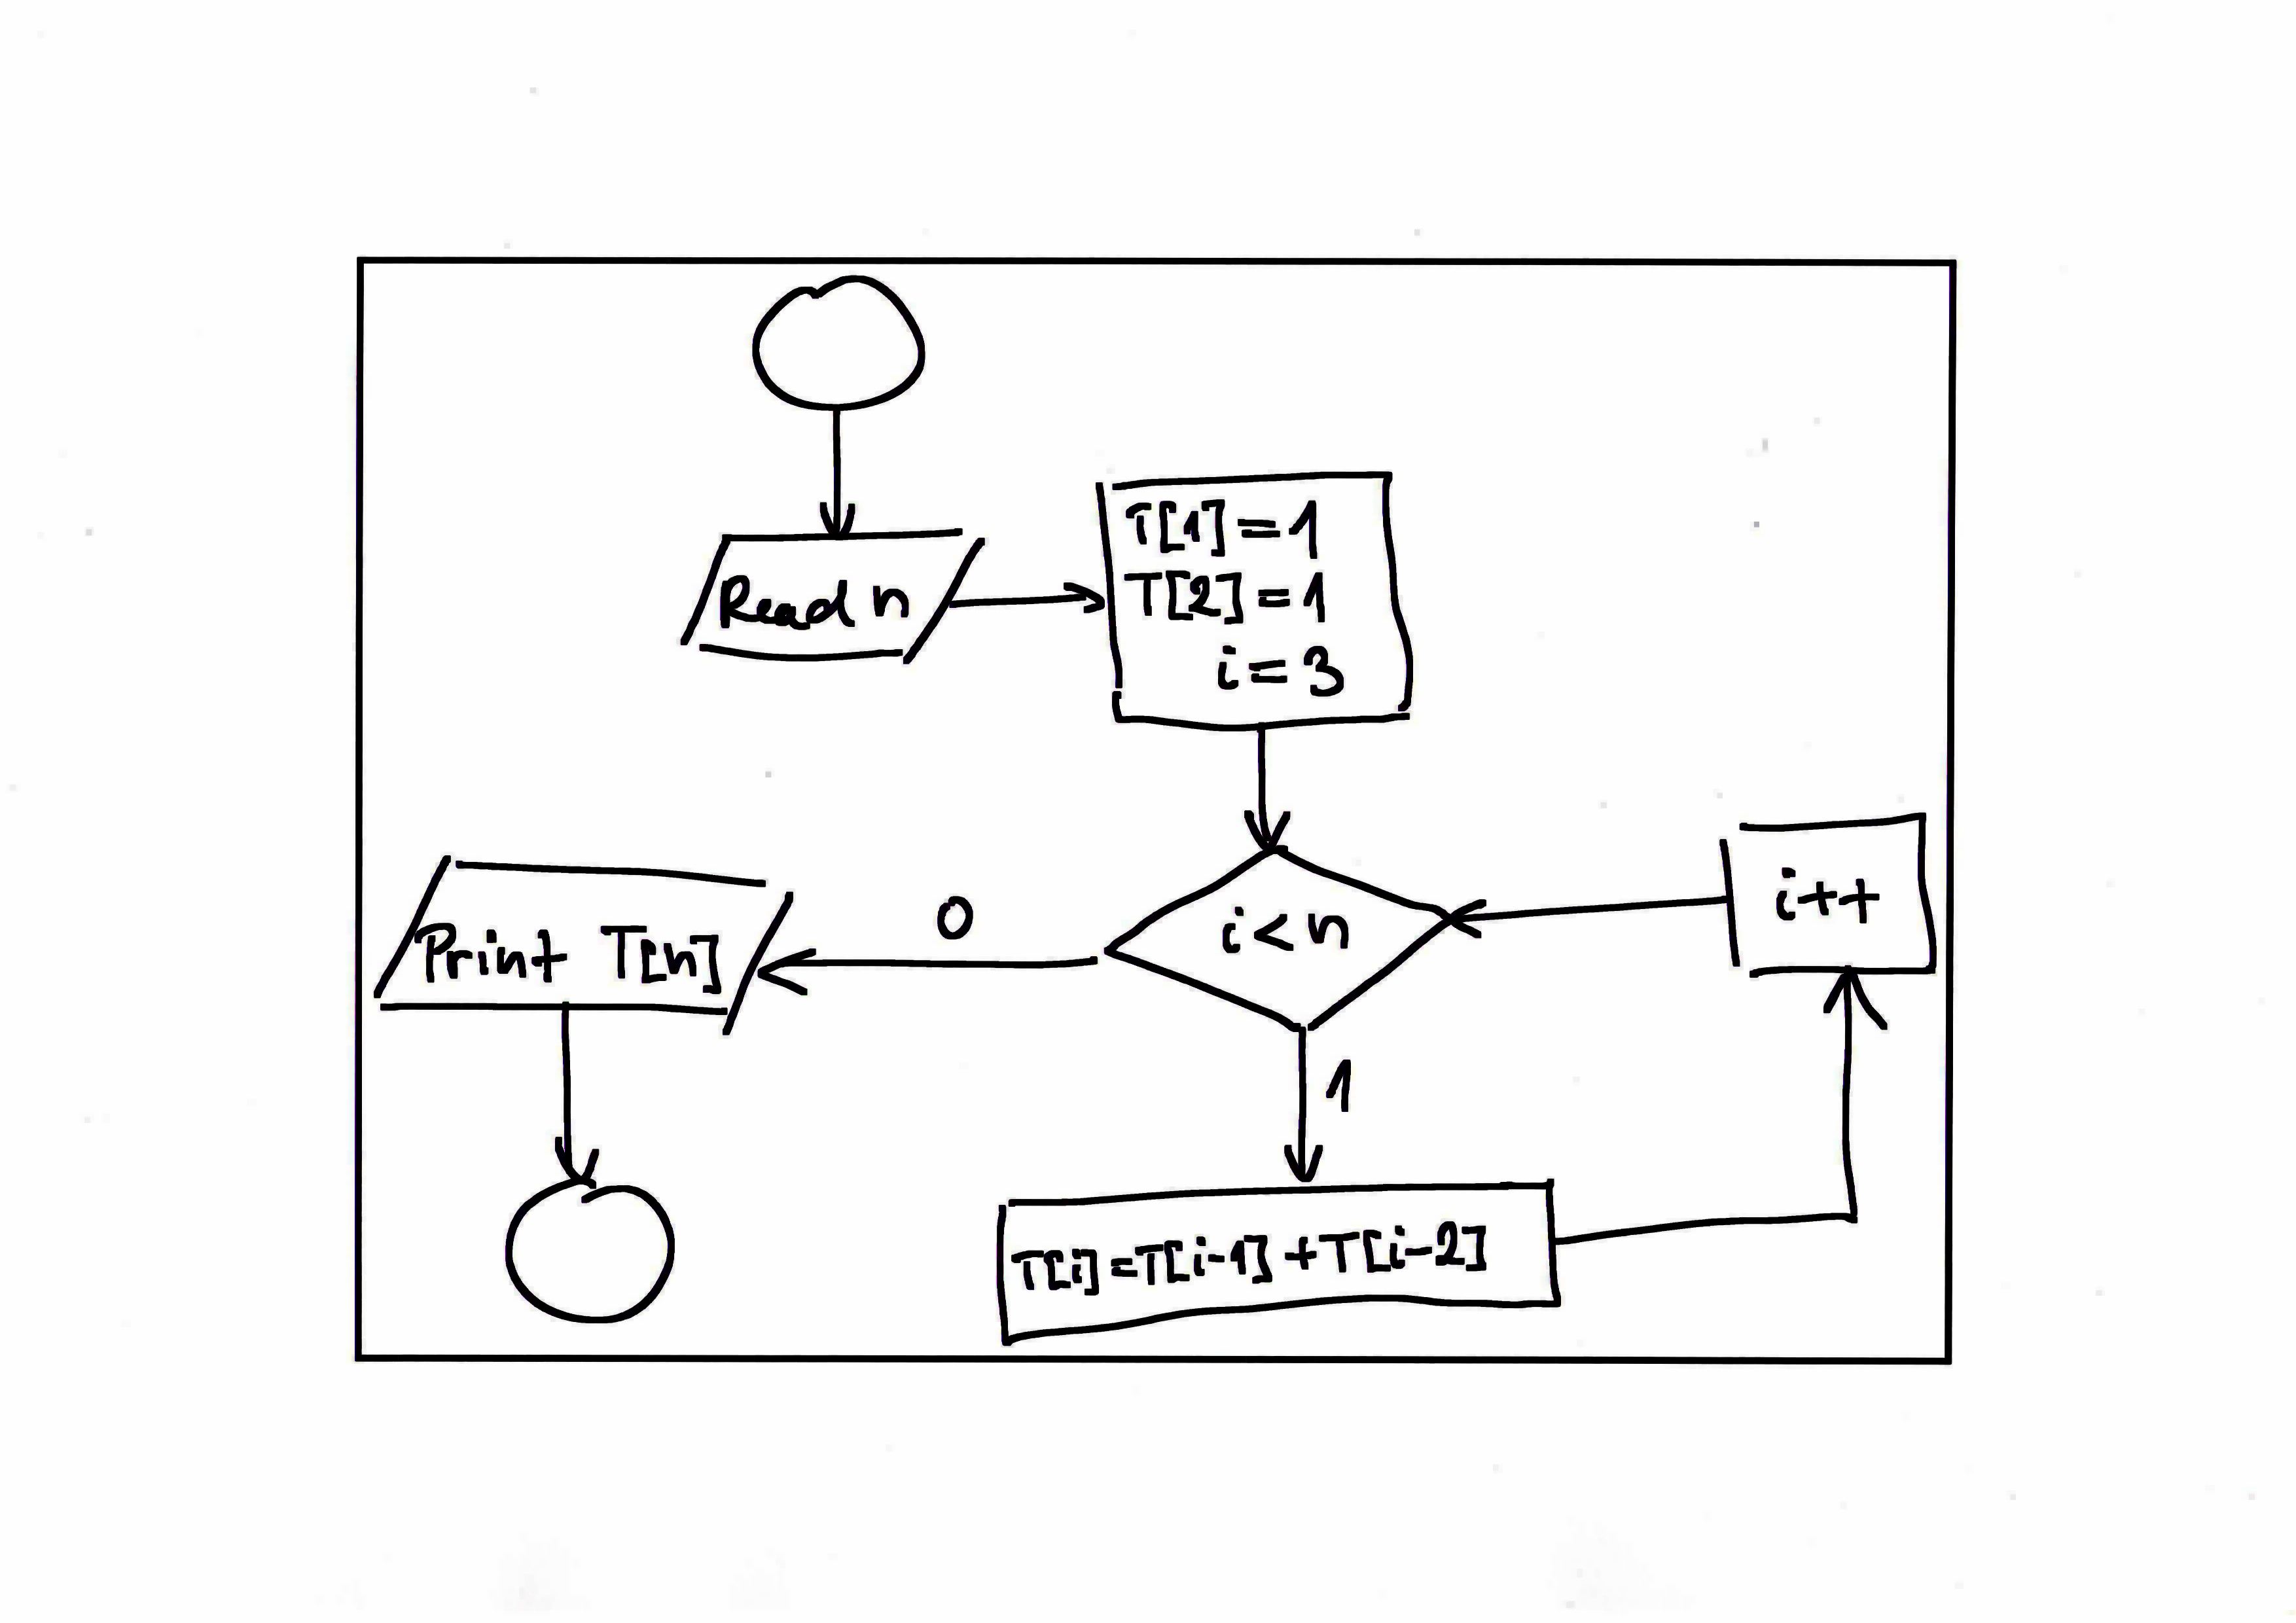 Read n
T[1]=1
T[2]=1
i=3
i<n
i++
0
Print T[n]
1
T[i]=T[i-1]+T[i-2]